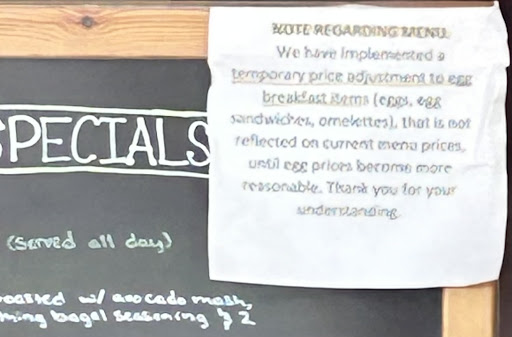 NOTE REGARDING MENU
We have implemented a
temporary price adjustment to egg
breakfast items (eggs, egg
sandwiches, omelettes), that is not
reflected on current menu prices,
until egg prices become more
reasonable. Thank you for your
understanding.
SPECIALS
(served all day)
oasted w/ avocado mash,
bagel seasoning